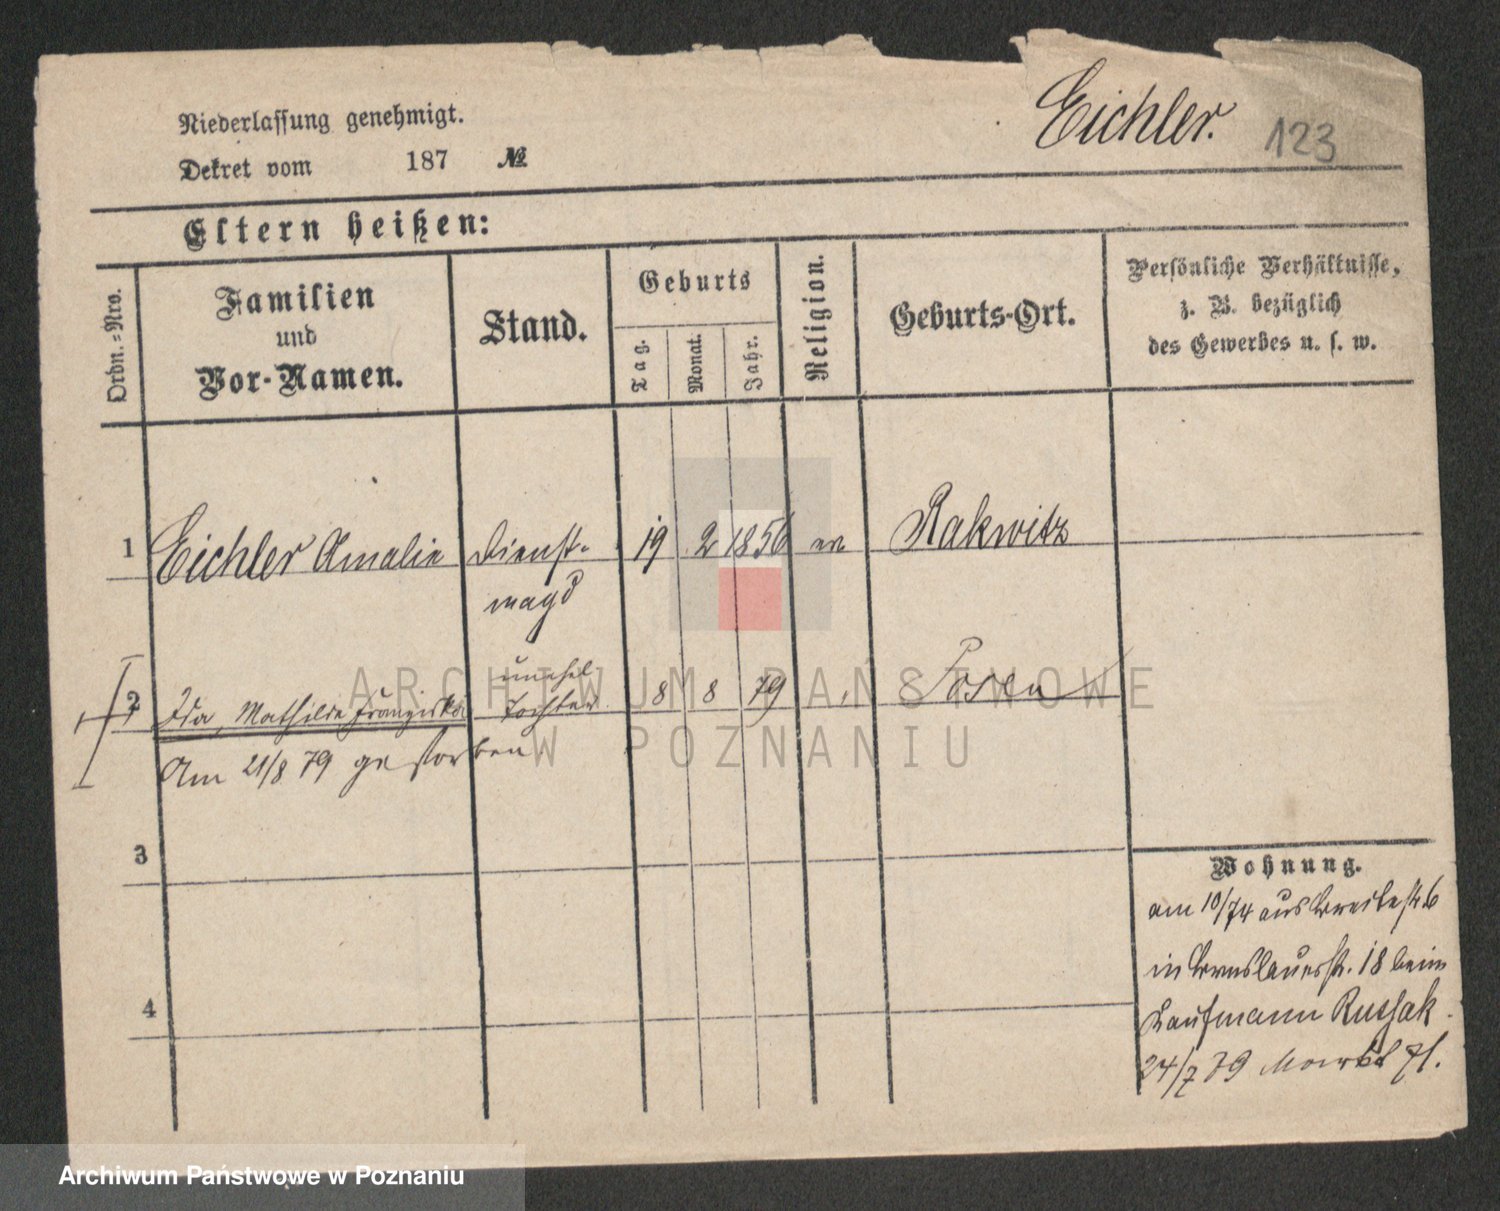 Niederlassung genehmigt.
Eichler. 123
Dekret vom 187 №
Eltern heißen:
Ordn.-Nro.
Familien
und
Vor-Namen.
Stand.
Geburts
Tag.
Monat.
Jahr.
Religion.
Geburts-Ort.
Persönliche Verhältnisse,
z. B. bezüglich
des Gewerbes u. s. w.
1 Eichler Amalie Dienst- 19 2 1856 ev Rakwitz
magd
unehel
2 Ida, Mathilde Franziska Tochter 8 8 79 Posen
Am 21/8 79 gestorben
3
Wohnung.
am 10/74 aus Breitestr 6
in Breslauerstr. 18 beim
4
Kaufmann Russak.
24/7 79 Markt 71.
ARCHIWUM PAŃSTWOWE
W POZNANIU
Archiwum Państwowe w Poznaniu